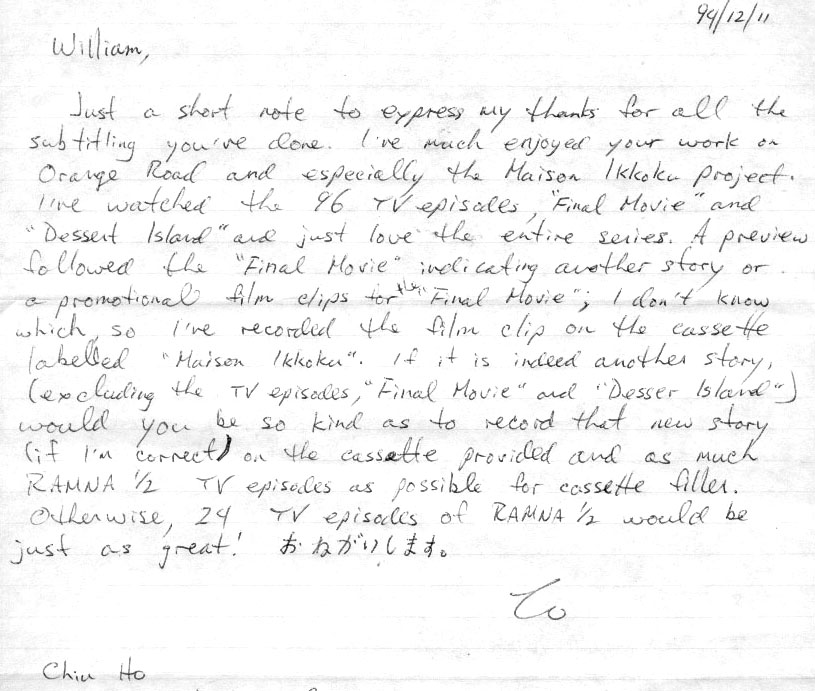 94/12/11
William,
Just a short note to express my thanks for all the
subtitling you've done. I've much enjoyed your work on
Orange Road and especially the Maison Ikkoku project.
I've watched the 96 TV episodes, "Final Movie" and
"Dessert Island" and just love the entire series. A preview
followed the "Final Movie" indicating another story or
a promotional film clips for the "Final Movie"; I don't know
which, so I've recorded the film clip on the cassette
labelled "Maison Ikkoku". If it is indeed another story,
(excluding the TV episodes, "Final Movie" and "Desser Island")
would you be so kind as to record that new story
(if I'm correct) on the cassette provided and as much
RAMNA 1/2 TV episodes as possible for cassette filler.
Otherwise, 24 TV episodes of RAMNA 1/2 would be
just as great! おねがいします。
Chiu Ho